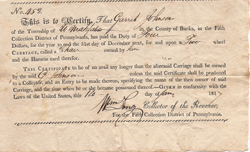 No. 452
This is to Certify, That Garret Johnson
of the Township of in the County of Bucks, in the Fifth
Collection District of Pennsylvania, has paid the Duty of Four
Dollars, for the year to end the 31st day of December next, for and upon a Two wheel
Carriage, called a Chair owned by him
and the Harness used therefor.
This Certificate to be of no avail any longer than the aforesaid Carriage shall be owned
by the said G Johnson unless the said Certificate shall be produced
to a Collector, and an Entry to be made thereon, specifying the name of the then owner of said
Carriage, and the time when he or she became possessed thereof.—Given in conformity with the
Laws of the United States, this day of 181
Collector of the Revenue,
For the Fifth Collection District of Pennsylvania.